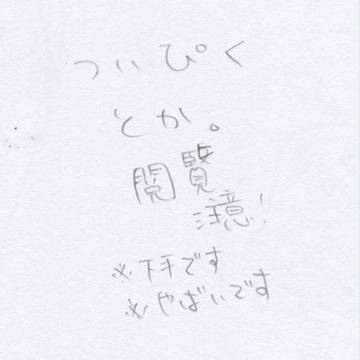 ついぴく
とか。
閲覧
注意！
※下手です
※やばいです